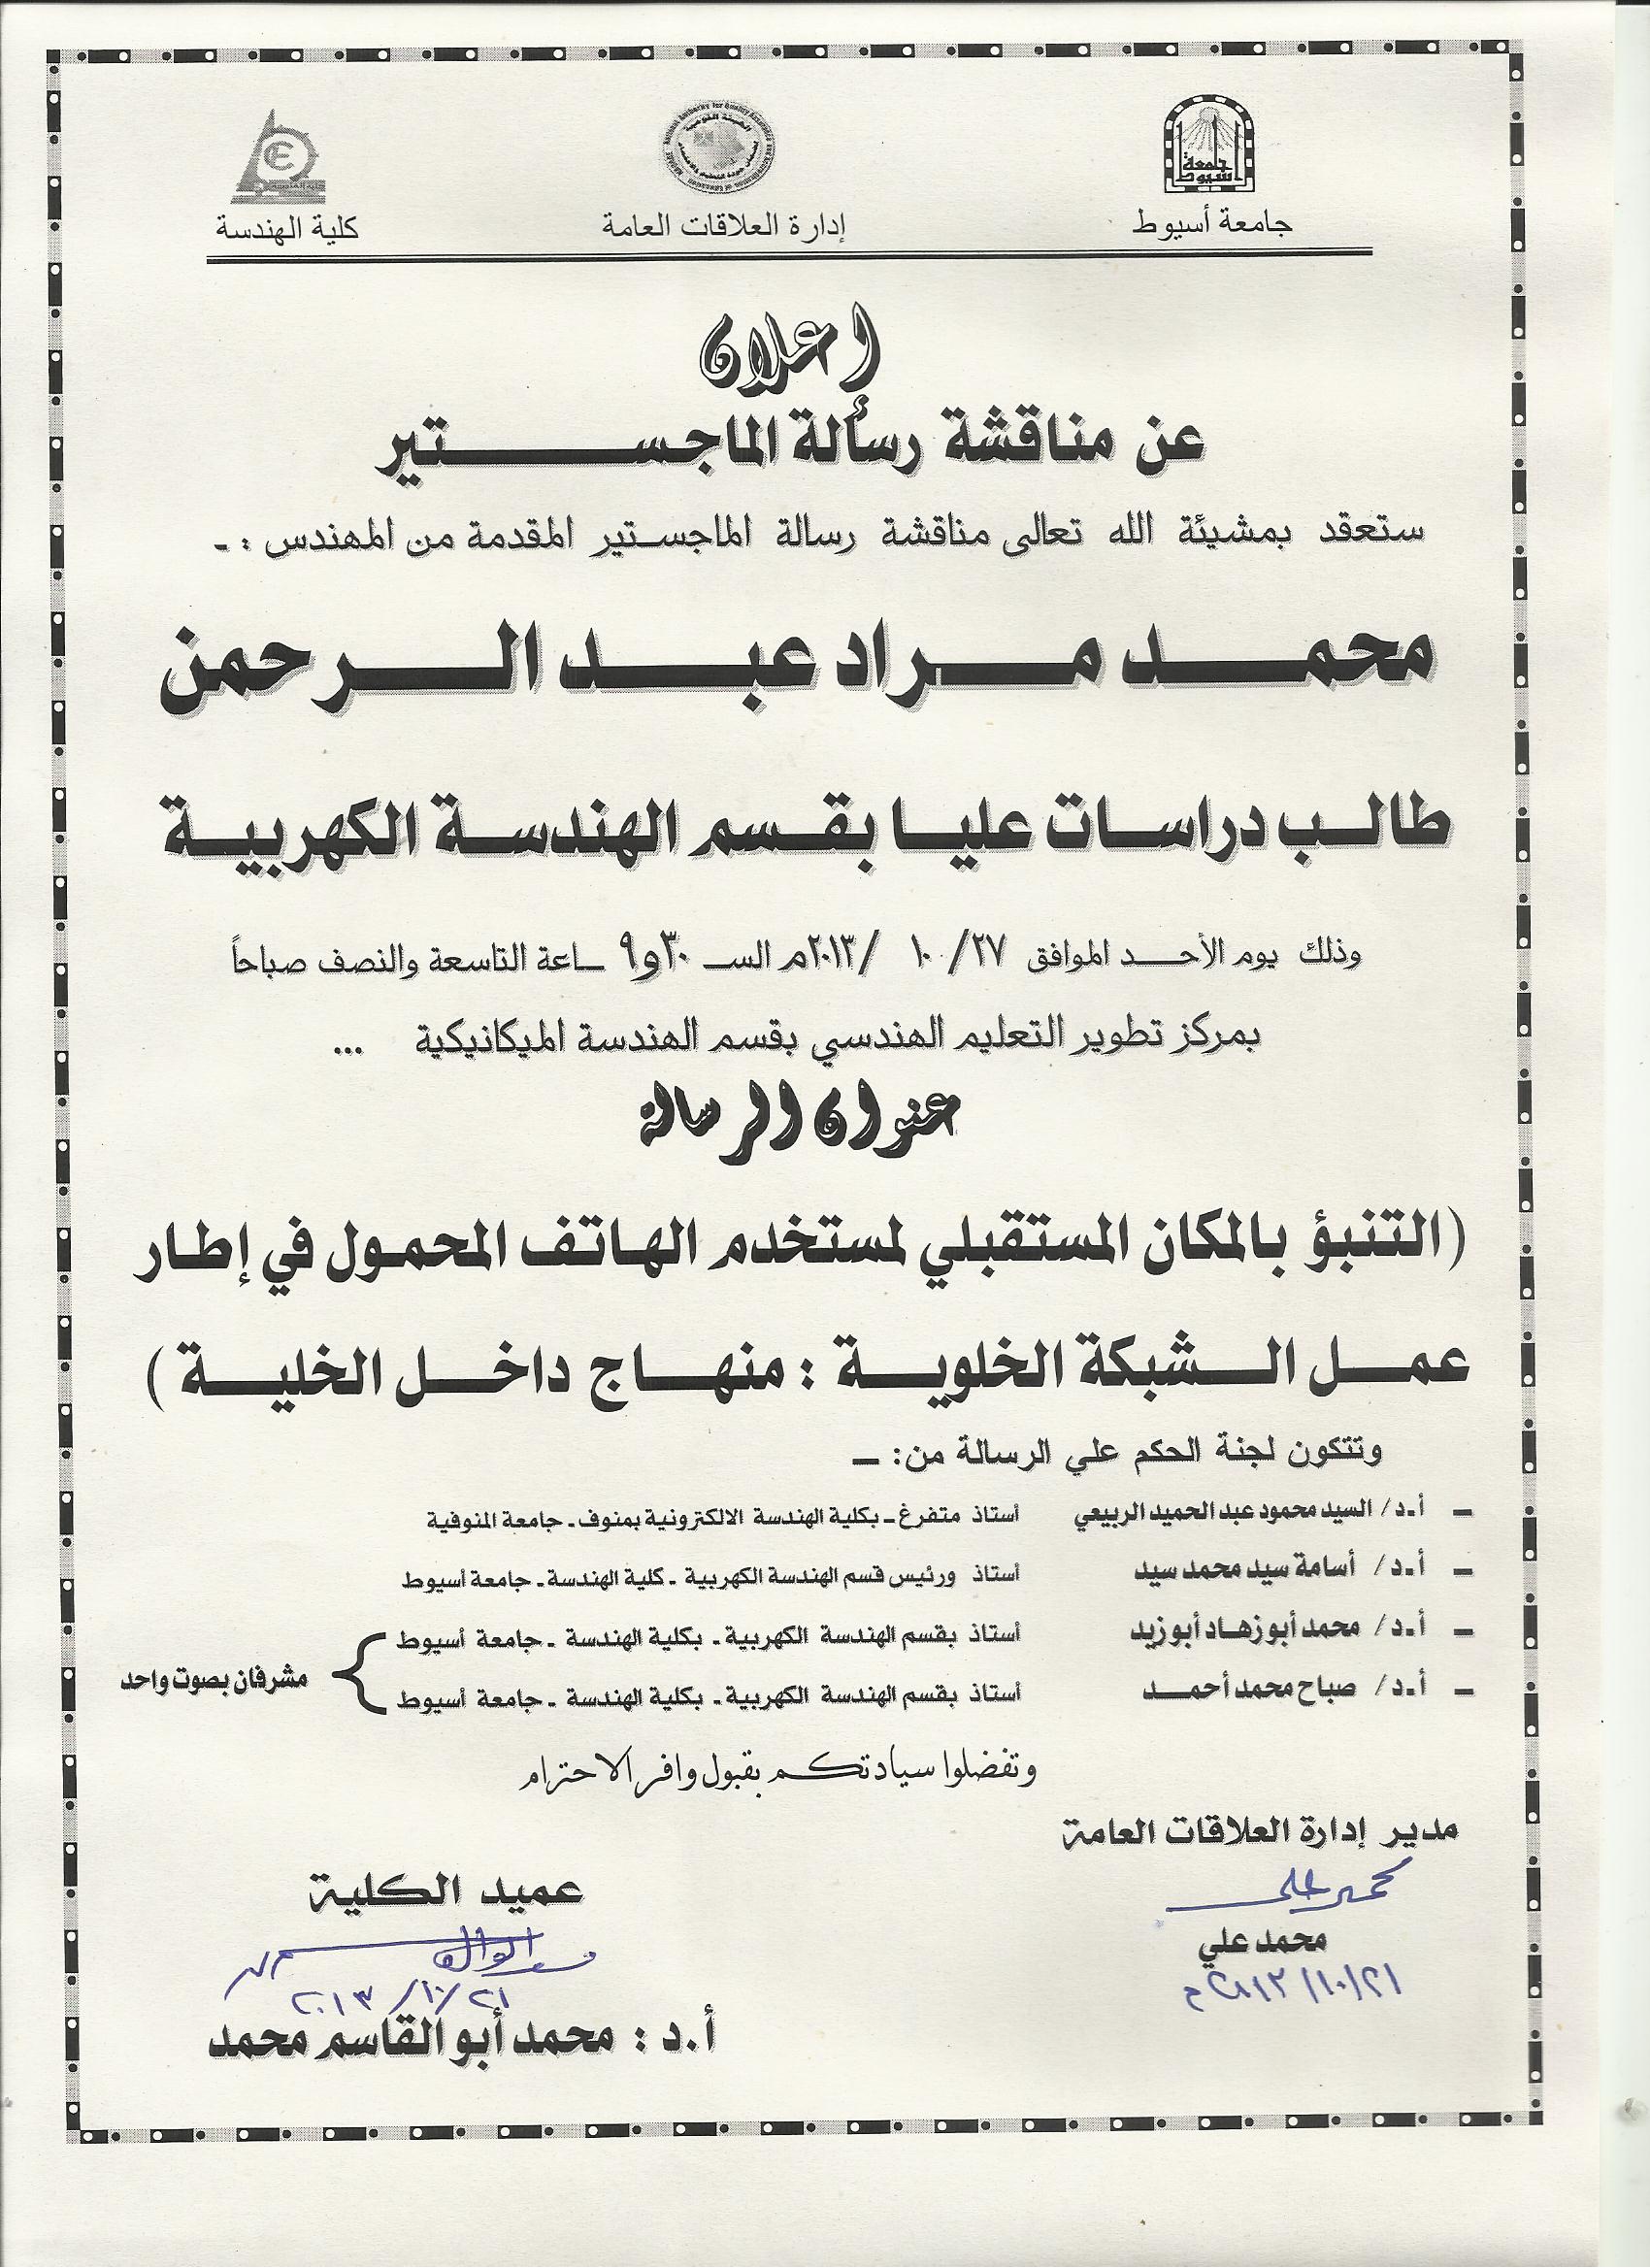 جامعة أسيوط
إدارة العلاقات العامة
كلية الهندسة
إعلان
عن مناقشة رسالة الماجستير
ستعقد بمشيئة الله تعالى مناقشة رسالة الماجستير المقدمة من المهندس :-
محمد مراد عبد الرحمن
طالب دراسات عليا بقسم الهندسة الكهربية
وذلك يوم الأحد الموافق ٢٧/ ١٠ /٢٠١٣م الساعة ٩و٣٠ التاسعة والنصف صباحاً
بمركز تطوير التعليم الهندسي بقسم الهندسة الميكانيكية ...
عنوان الرسالة
(التنبؤ بالمكان المستقبلي لمستخدم الهاتف المحمول في إطار
عمل الشبكة الخلوية : منهاج داخل الخلية )
وتتكون لجنة الحكم علي الرسالة من: –
– أ.د/ السيد محمود عبد الحميد الربيعي أستاذ متفرغ - بكلية الهندسة الالكترونية بمنوف - جامعة المنوفية
– أ.د/ أسامة سيد محمد سيد أستاذ ورئيس قسم الهندسة الكهربية - كلية الهندسة - جامعة أسيوط
– أ.د/ محمد أبو زهاد أبو زيد أستاذ بقسم الهندسة الكهربية - بكلية الهندسة - جامعة أسيوط
– أ.د/ صباح محمد أحمد أستاذ بقسم الهندسة الكهربية - بكلية الهندسة - جامعة أسيوط
مشرفان بصوت واحد
وتفضلوا سيادتكم بقبول وافر الاحترام
مدير إدارة العلاقات العامة
محمد علي
محمد علي
٢٠١٣/١٠/٢١ م
عميد الكلية
٢٠١٣/١٠/٢١
أ.د : محمد أبو القاسم محمد